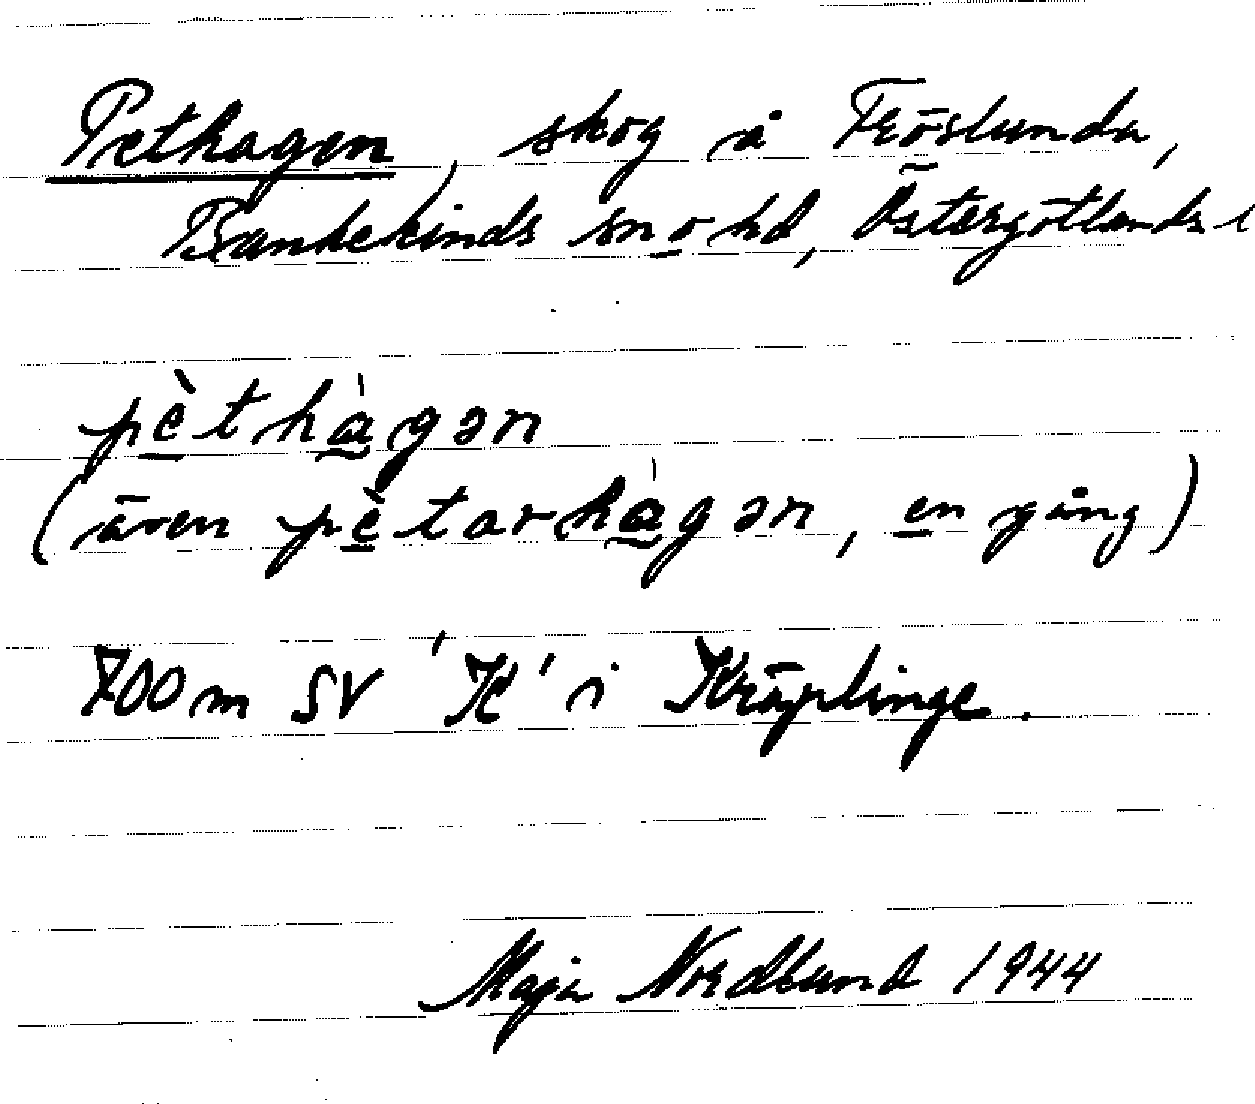 Pethagen, skog å Fröslunda,
Bankekinds sn o hd, Östergötlands l
pèthàgən
(även pètarhàgən, en gång)
700 m SV 'K' i Kräplinge.
Maja Nordlund 1944